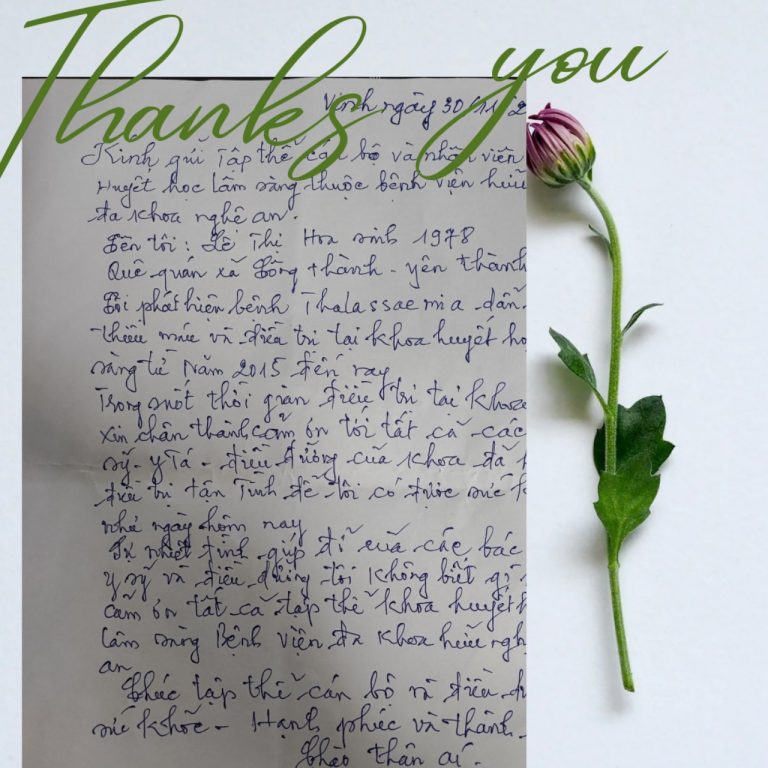 Thanks you
Vinh ngày 30/11/2
Kính gửi Tập thể cán bộ và nhân viên
Huyết học lâm sàng thuộc bệnh viện hữu
đa khoa nghệ an.
Tên tôi: Lê Thị Hoa sinh 1978
Quê quán xã Đồng thành - yên thành
Tôi phát hiện bệnh Thalassaemia dẫn
thiếu máu và điều trị tại khoa huyết họ
sàng từ Năm 2015 đến nay
Trong suốt thời gian điều trị tại khoa
xin chân thành cảm ơn tới tất cả các
sỹ - y Tá - điều dưỡng của khoa đã
điều trị tận Tình để tôi có được sức k
như ngày hôm nay
Sự nhiệt tình giúp đỡ của các bác
y sỹ và điều dưỡng tôi không biết gì
cảm ơn tất cả tập thể khoa huyết h
lâm sàng Bệnh viện đa khoa hữu ngh
an
Chúc tập thể cán bộ và điều d
sức khỏe - Hạnh phúc và thành
Chào thân ái.